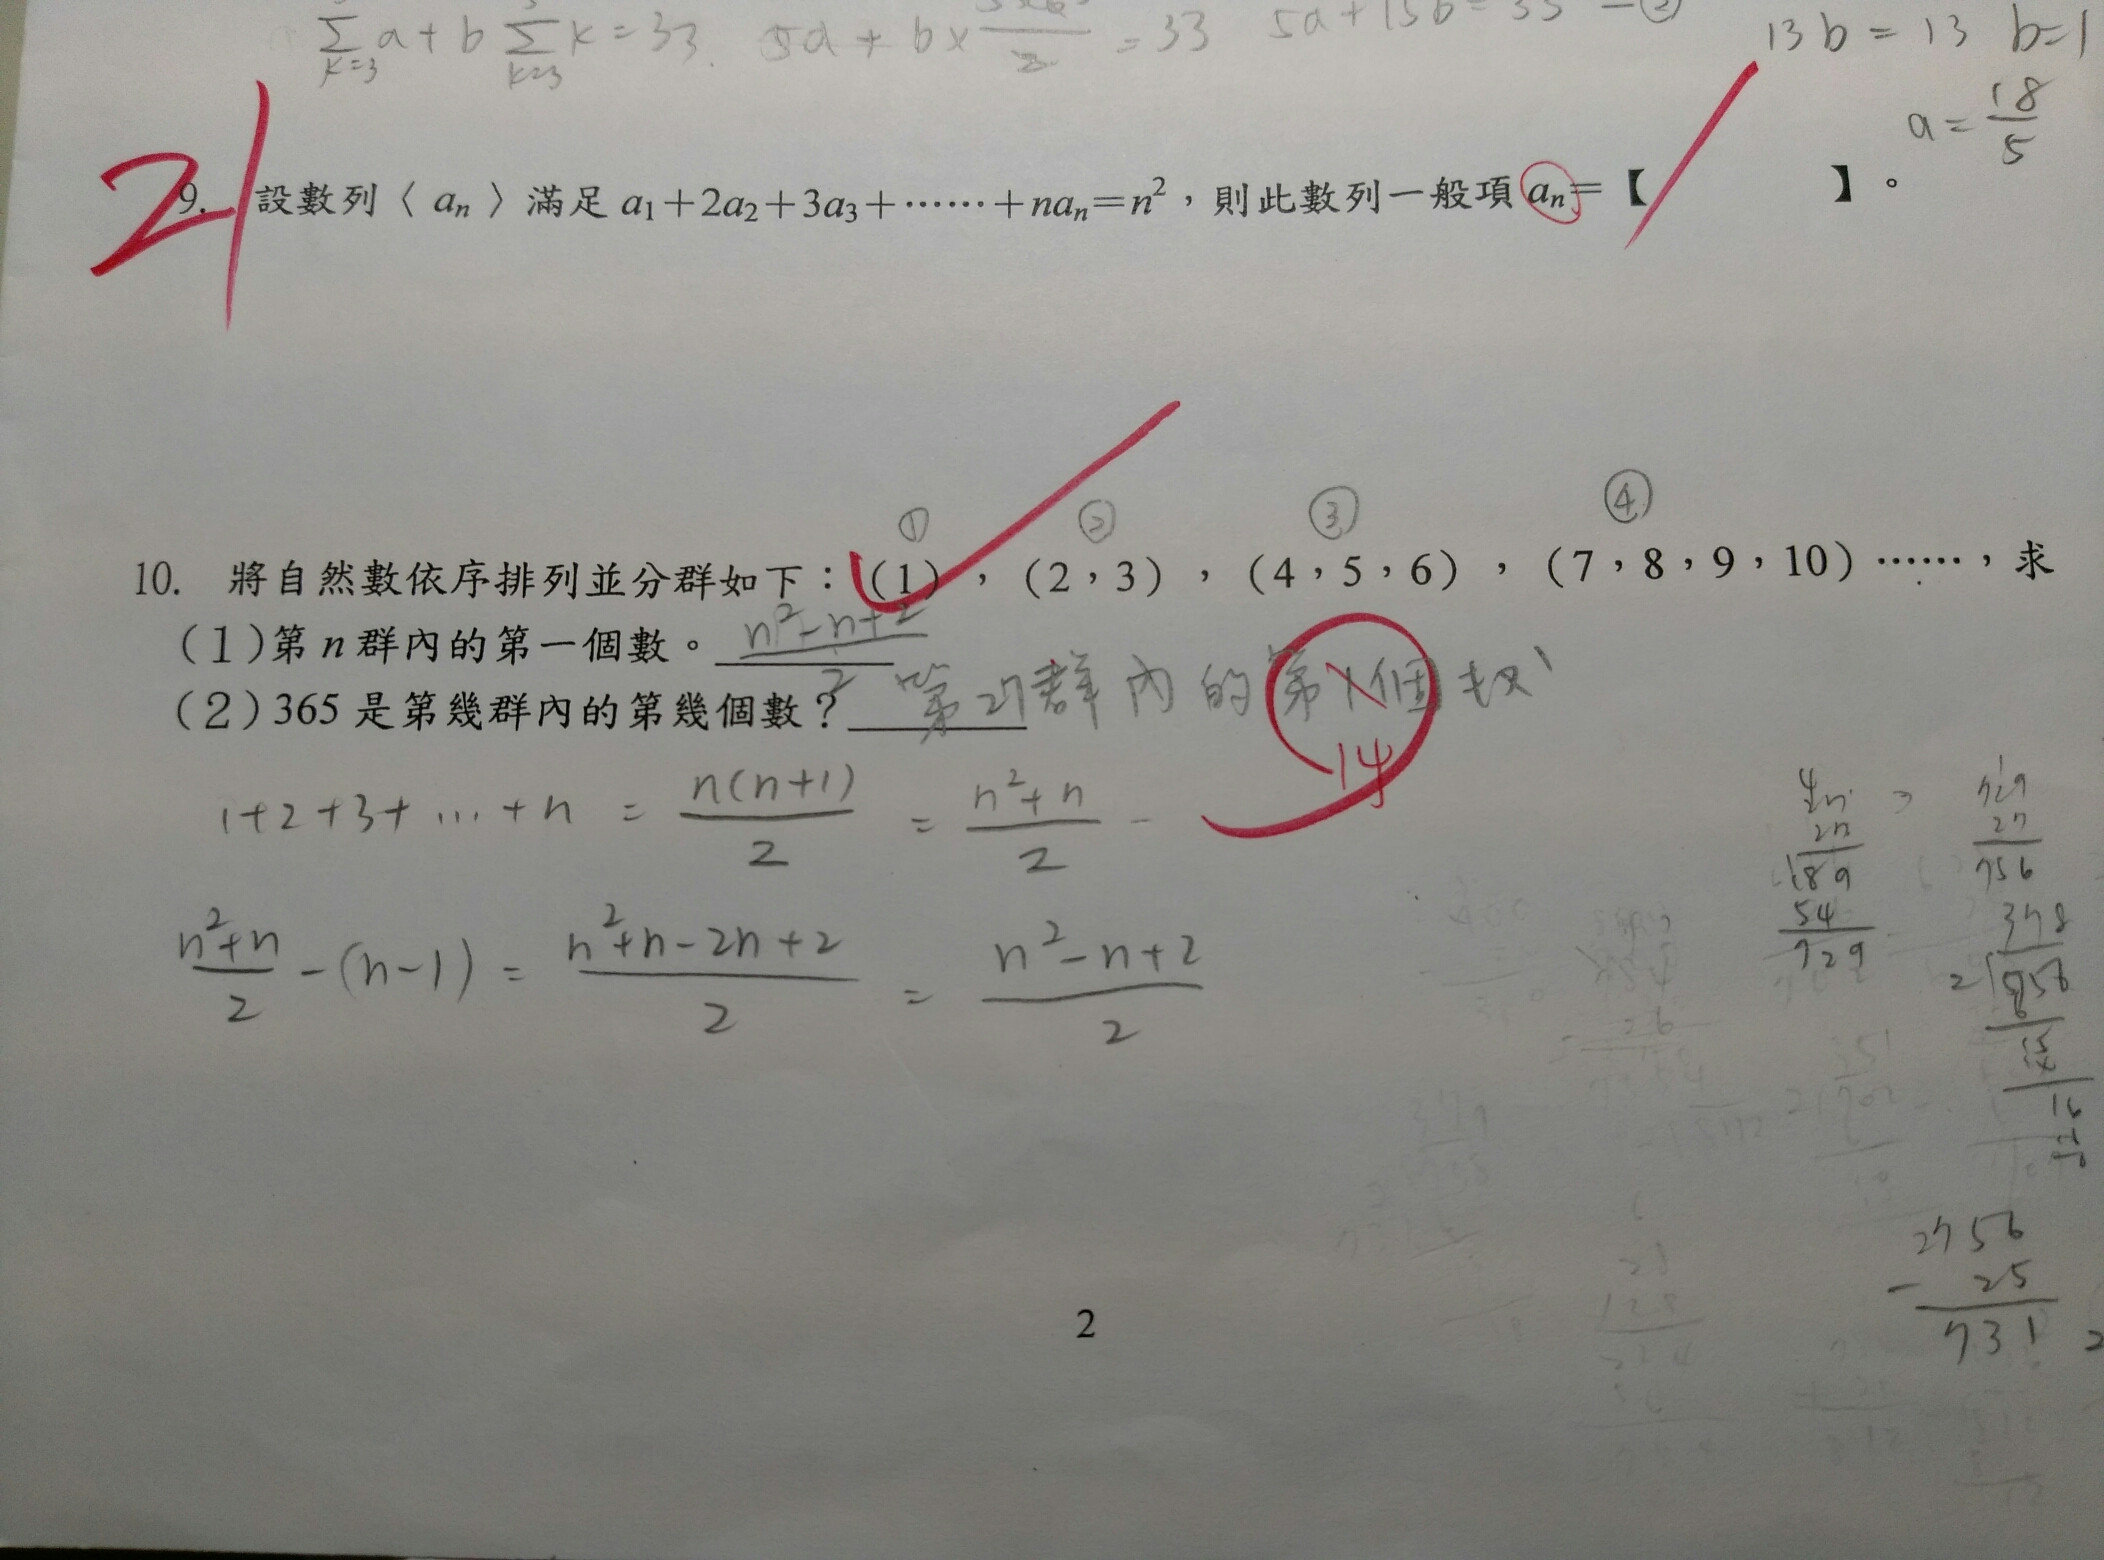 ∑ a + b ∑ k = 33. 5a + b× = 33 5a+15b=33 —②
k=3 k=3 2
13b = 13 b=1
a = 18/5
21
9. 設數列〈 aₙ 〉滿足 a₁+2a₂+3a₃+⋯⋯+naₙ=n²,則此數列一般項 aₙ=【 】。
① ② ③ ④
10. 將自然數依序排列並分群如下:(1),(2,3),(4,5,6),(7,8,9,10)⋯⋯,求
(1)第 n 群內的第一個數。 (n²-n+2)/2
(2)365 是第幾群內的第幾個數? 第27群內的第1個数
14
1+2+3+...+n = n(n+1)/2 = (n²+n)/2 -
(n²+n)/2 -(n-1) = (n²+n-2n+2)/2 = (n²-n+2)/2
27
189
54
729
729
27
756
378
2
756
- 25
731
2